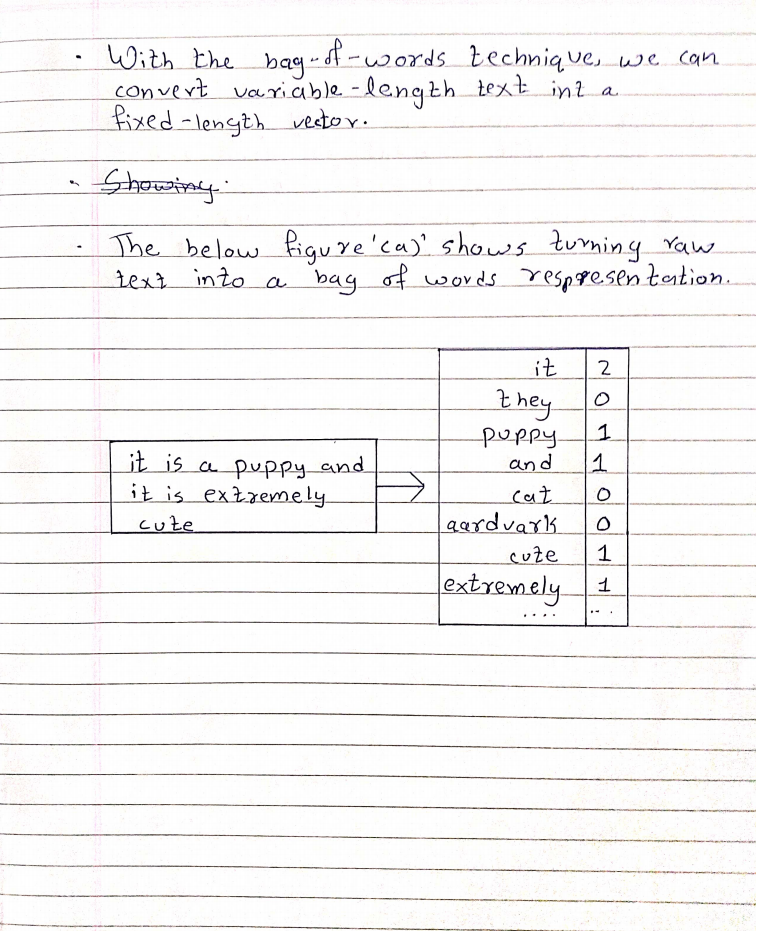 · With the bag-of-words technique, we can
convert variable-length text int a
fixed-length vector.
· Showing.
· The below figure '(a)' shows turning raw
text into a bag of words respresentation.
it is a puppy and
it is extremely
cute
it 2
they 0
puppy 1
and 1
cat 0
aardvark 0
cute 1
extremely 1
.... ....